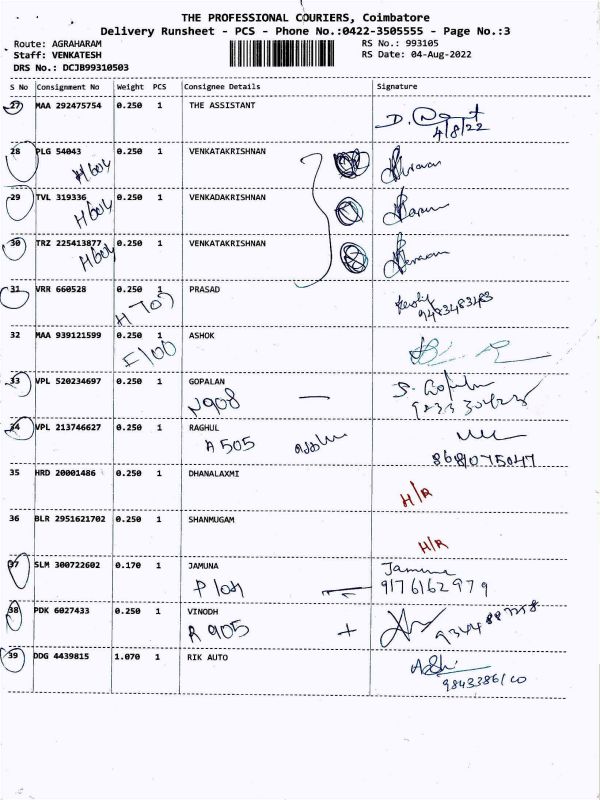 THE PROFESSIONAL COURIERS, Coimbatore
Delivery Runsheet - PCS - Phone No.:0422-3505555 - Page No.:3
Route: AGRAHARAM RS No.: 993105
Staff: VENKATESH RS Date: 04-Aug-2022
DRS No.: DCJB99310503
S No Consignment No Weight PCS Consignee Details Signature
27 MAA 292475754 0.250 1 THE ASSISTANT
4/8/22
28 PLG 54043 0.250 1 VENKATAKRISHNAN
H604
29 TVL 319336 0.250 1 VENKADAKRISHNAN
H604
30 TRZ 225413877 0.250 1 VENKATAKRISHNAN
H604
31 VRR 660528 0.250 1 PRASAD
H 707 9483483483
32 MAA 939121599 0.250 1 ASHOK
33 VPL 520234697 0.250 1 GOPALAN
34 VPL 213746627 0.250 1 RAGHUL
A 505 8681075047
35 HRD 20001486 0.250 1 DHANALAXMI
H/R
36 BLR 2951621702 0.250 1 SHANMUGAM
H/R
37 SLM 300722602 0.170 1 JAMUNA Jamuna
9176162979
38 PDK 6027433 0.250 1 VINODH
R 905
39 DDG 4439815 1.070 1 RIK AUTO